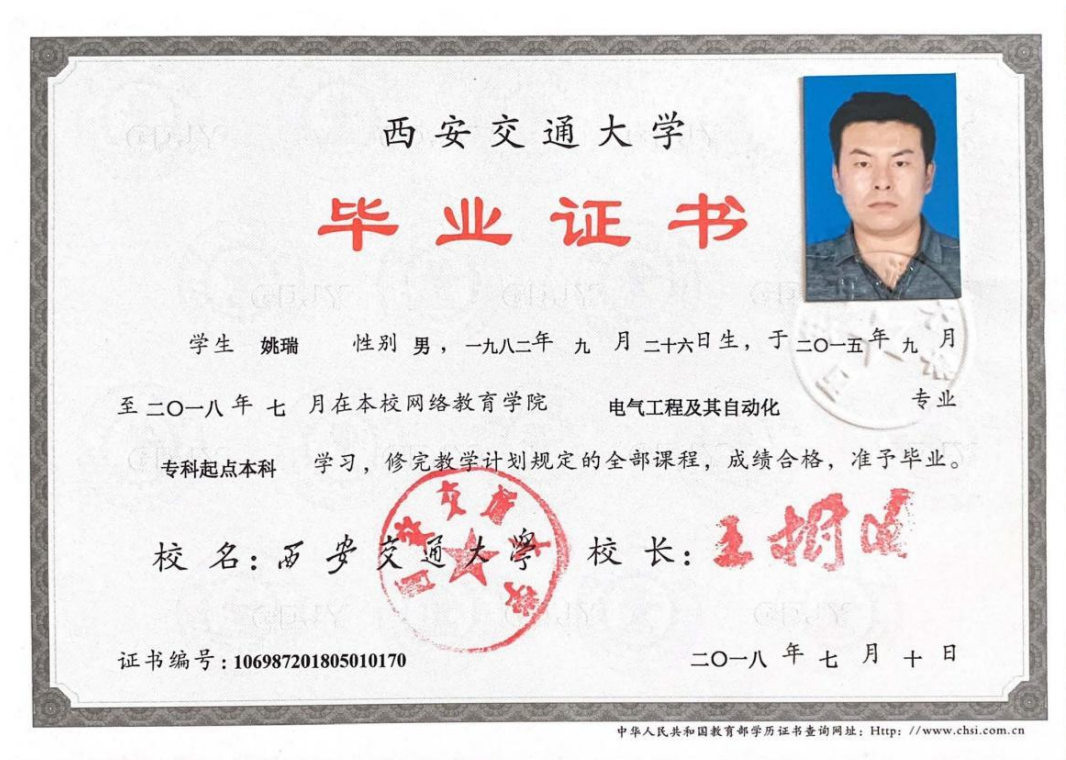 西安交通大学
毕业证书
学生 姚瑞 性别 男，一九八二年 九 月 二十六日生，于 二〇一五年 九 月
至 二〇一八 年 七 月在本校网络教育学院 电气工程及其自动化 专业
专科起点本科 学习，修完教学计划规定的全部课程，成绩合格，准予毕业。
校 名：西安交通大学 校 长：王树国
证书编号：106987201805010170 二〇一八 年 七 月 十 日
中华人民共和国教育部学历证书查询网址：Http：//www.chsi.com.cn